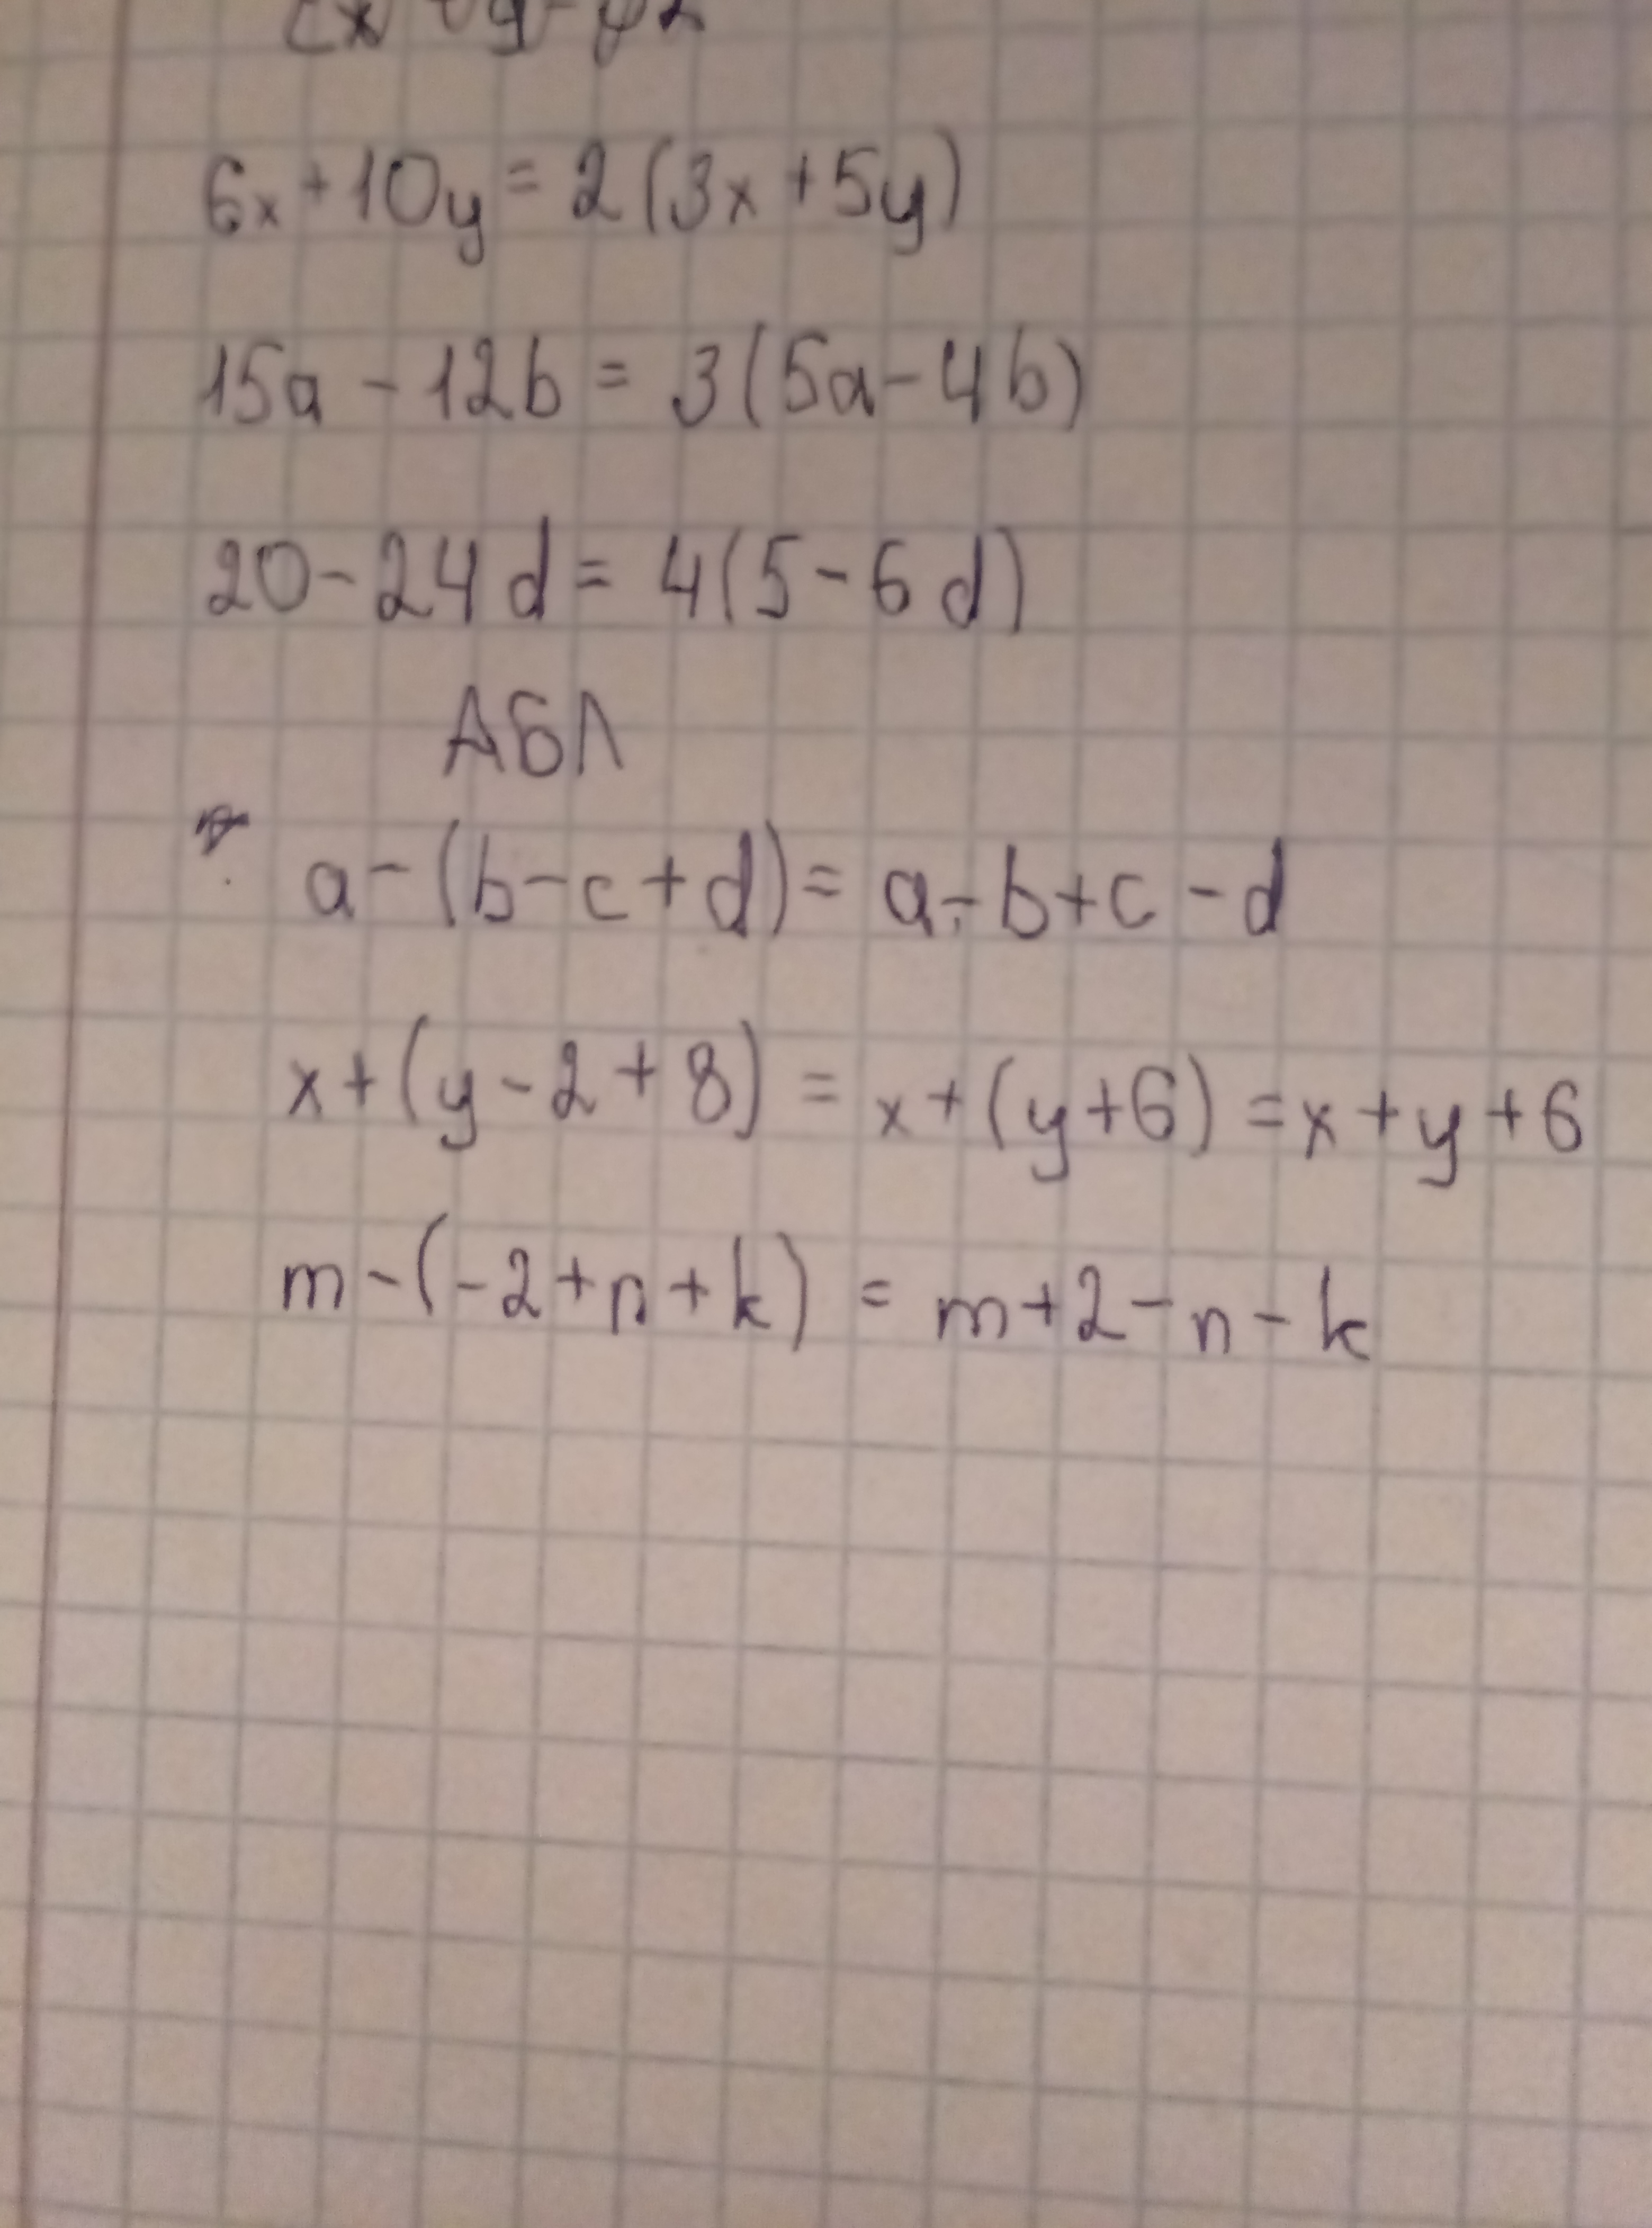 6x+10y=2(3x+5y)
15a-12b=3(5a-4b)
20-24d=4(5-6d)
АБЛ
a-(b-c+d)=a-b+c-d
x+(y-2+8)=x+(y+6)=x+y+6
m-(-2+n+k)=m+2-n-k